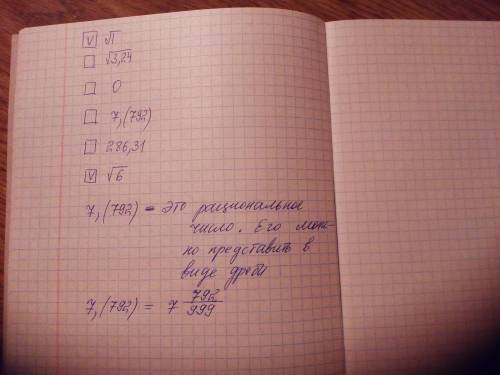 ☑ √П
☐ √3,24
☐ 0
☐ 7,(792)
☐ 286,31
☑ √6
7,(792) - это рациональное
число. Его мож-
но представить в
виде дроби
7,(792) = 7 792/999